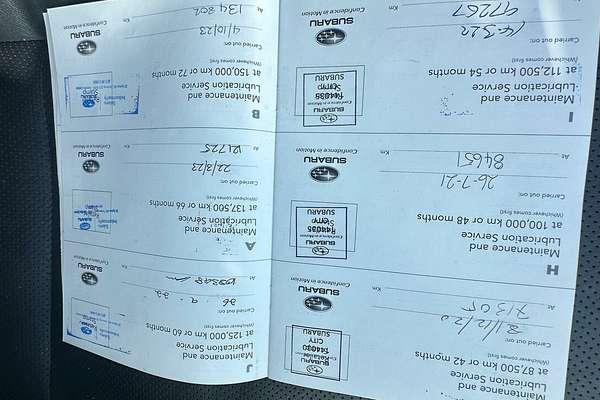 Maintenance and
at 87,500 km or 42 months
(Whichever comes first)
Carried out on:
31/12/20
71305
Km
SUBARU
Confidence in Motion
SUBARU
CITY
H
Maintenance and
Lubrication Service
at 100,000 km or 48 months
(Whichever comes first)
Carried out on:
26-7-21
At
84651
Km
SUBARU
Confidence in Motion
SUBARU
CITY
I
Maintenance and
Lubrication Service
at 112,500 km or 54 months
(Whichever comes first)
Carried out on:
14.3.22
At
97267
Km
SUBARU
Confidence in Motion
SUBARU
J
Maintenance and
Lubrication Service
at 125,000 km or 60 months
(Whichever comes first)
Carried out on:
26.9.22
At
Km
SUBARU
Confidence in Motion
A
Maintenance and
Lubrication Service
at 137,500 km or 66 months
(Whichever comes first)
Carried out on:
22/3/23
At
121725
Km
SUBARU
Confidence in Motion
B
Maintenance and
Lubrication Service
at 150,000 km or 72 months
(Whichever comes first)
Carried out on:
4/10/23
At
134802
Km
SUBARU
Confidence in Motion